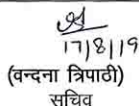 17/8/19
(वन्दना त्रिपाठी)
सचिव